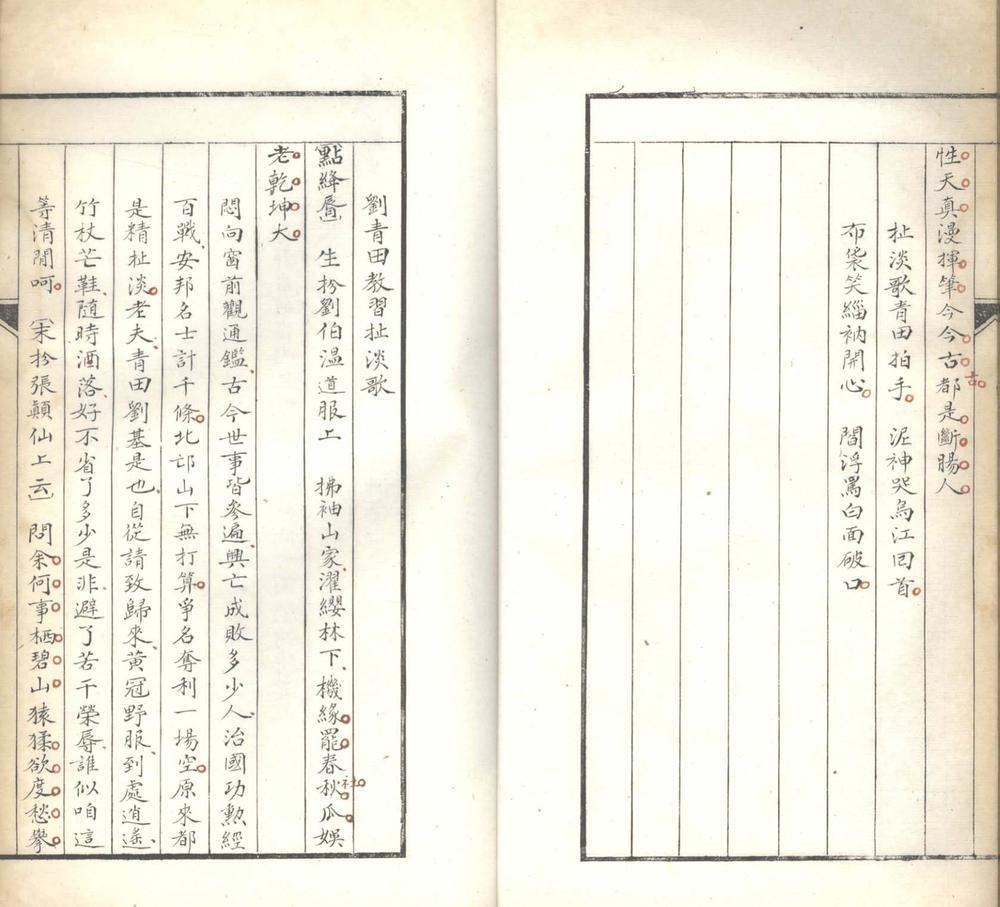 性天真漫揮筆今今古都是斷腸人
古
扯淡歌青田拍手　泥神哭烏江回首
布袋笑緇衲開心　閻浮罵白面破口
劉青田教習扯淡歌
點絳唇　生扮劉伯温道服上　拂袖山家濯纓林下機緣罷春秋瓜娛
社
老乾坤大
悶向窗前觀通鑑古今世事皆參遍興亡成敗多少人治國功勲經
百戰安邦名士計千條北邙山下無打算爭名奪利一場空原來都
是精扯淡老夫青田劉基是也自從請致歸來黃冠野服到處逍遙
竹杖芒鞋隨時洒落好不省了多少是非避了若干榮辱誰似咱這
等清閒呵（末扮張顛仙上云）　問余何事栖碧山猿猱欲度愁攀